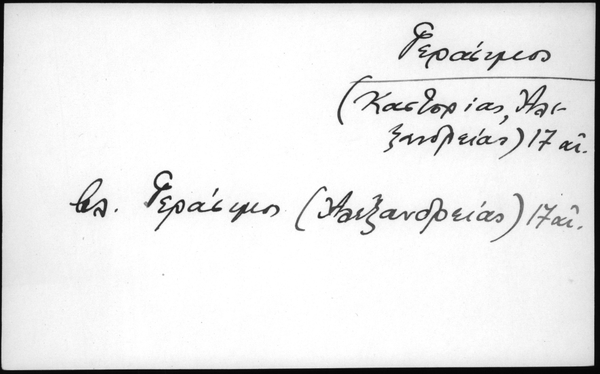 Γεράσιμος
(Καστορίας, Ἀλε-
ξανδρείας) 17 αἰ.
βλ. Γεράσιμος (Ἀλεξανδρείας) 17 αἰ.